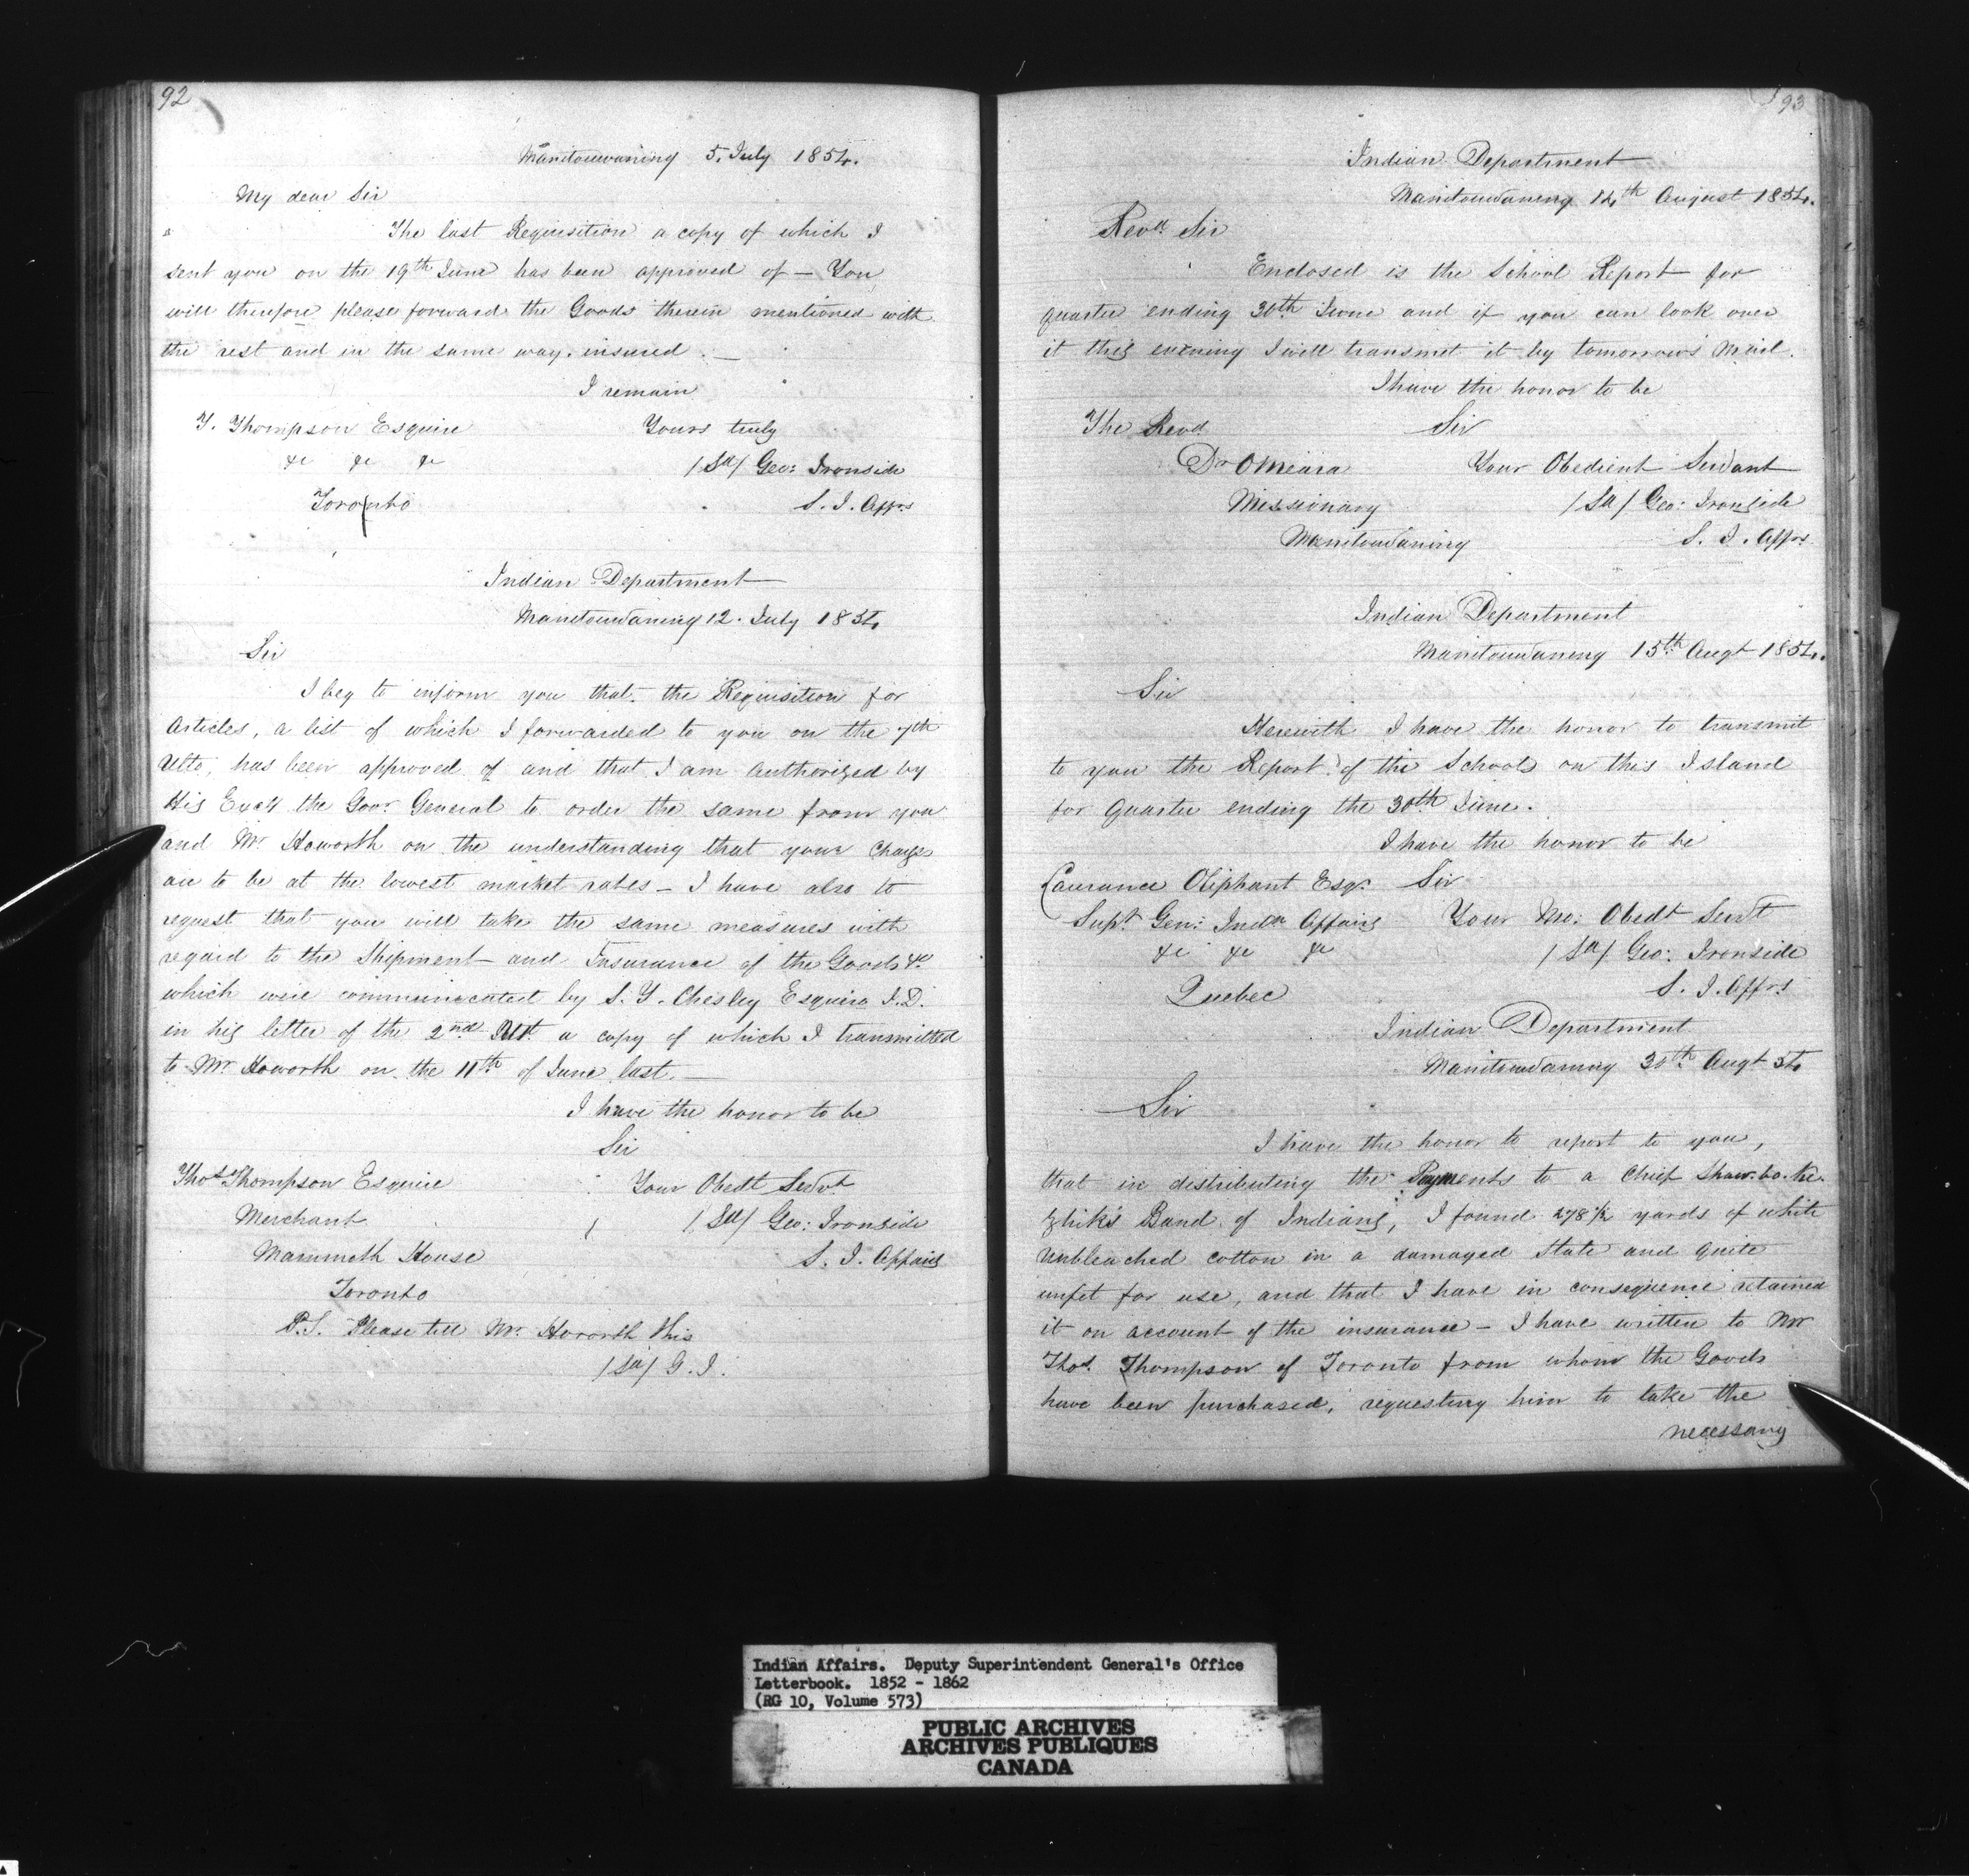 92
Manitouwaning 5. July 1854.
My dear Sir
The last Requisition a copy of which I
sent you on the 19th June has been approved of — You
will therefore please forward the Goods therein mentioned with
the rest and in the same way. insured. —
I remain
T. Thompson Esquire Yours truly
&c &c &c /Sd/ Geo: Ironside
Toronto S. I. Affrs
Indian Department
Manitouwaning 12. July 1854
Sir
I beg to inform you that the Requisition for
Articles, a list of which I forwarded to you on the 7th
Ulto, has been approved of and that I am Authorized by
His Excy the Govr General to order the same from you
and Mr Haworth on the understanding that your Charges
are to be at the lowest market rates — I have also to
request that you will take the same measures with
regard to the Shipment and Insurance of the Goods &c
which were communicated by S. Y. Chesley Esquire I.D.
in his letter of the 2nd Ult. a copy of which I transmitted
to Mr Haworth on the 11th of June last. —
I have the honor to be
Sir
Thos Thompson Esquire Your Obedt Servt
Merchant /Sd/ Geo: Ironside
Mammoth House S. I. Affairs
Toronto
P.S. Please tell Mr. Haworth this
/Sd/ G. I.
93
Indian Department
Manitouwaning 14th August 1854.
Revd. Sir
Enclosed is the School Report for
quarter ending 30th June and if you can look over
it this evening I will transmit it by tomorrow's Mail.
I have the honor to be
The Revd Sir
Dr OMeara Your Obedient Servant
Missionary /Sd/ Geo: Ironside
Manitouwaning S. I. Affrs
Indian Department
Manitouwaning 15th Augt 1854.
Sir
Herewith I have the honor to transmit
to you the Report of the Schools on this Island
for Quarter ending the 30th June.
I have the honor to be
Laurance Oliphant Esqr. Sir
Supt Gen: Indn Affairs Your Mo: Obedt Servt
&c &c &c /Sd/ Geo: Ironside
Quebec S. I. Affrs
Indian Department
Manitouwaning 30th Augt 54
Sir
I have the honor to report to you,
that in distributing the Payments to a Chief Shaw-bo-ke-
zhik's Band of Indians, I found 278½ yards of white
unbleached cotton in a damaged State and quite
unfit for use, and that I have in consequence retained
it on account of the insurance — I have written to Mr
Thos. Thompson of Toronto from whom the Goods
have been purchased, requesting him to take the
necessary
Indian Affairs. Deputy Superintendent General's Office
Letterbook. 1852 - 1862
(RG 10, Volume 573)
PUBLIC ARCHIVES
ARCHIVES PUBLIQUES
CANADA